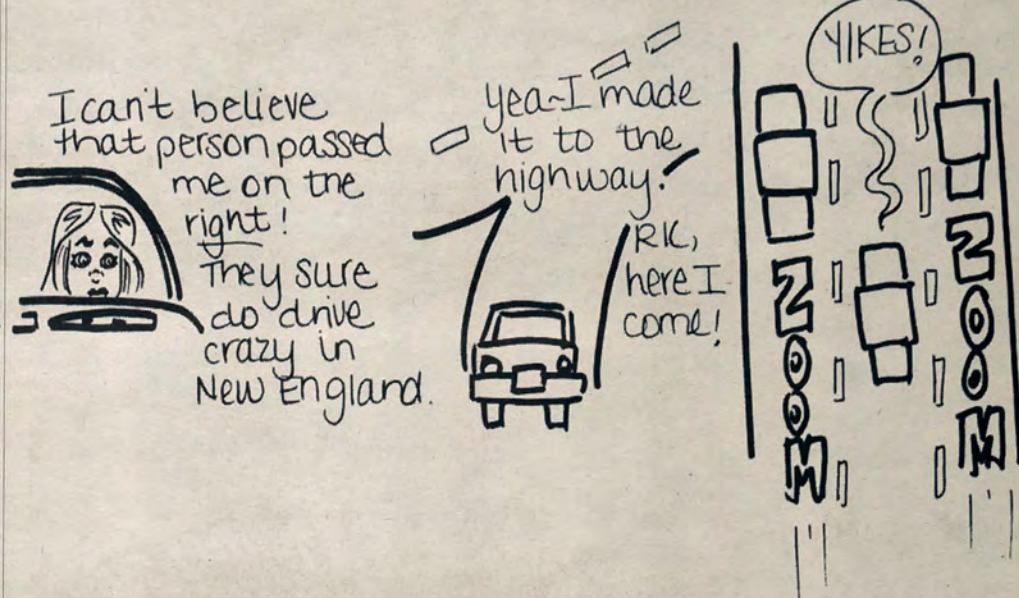 I can't believe
that person passed
me on the
right!
They sure
do drive
crazy in
New England.
yea~I made
it to the
highway!
RIC,
here I
come!
YIKES!
ZOOM
ZOOM